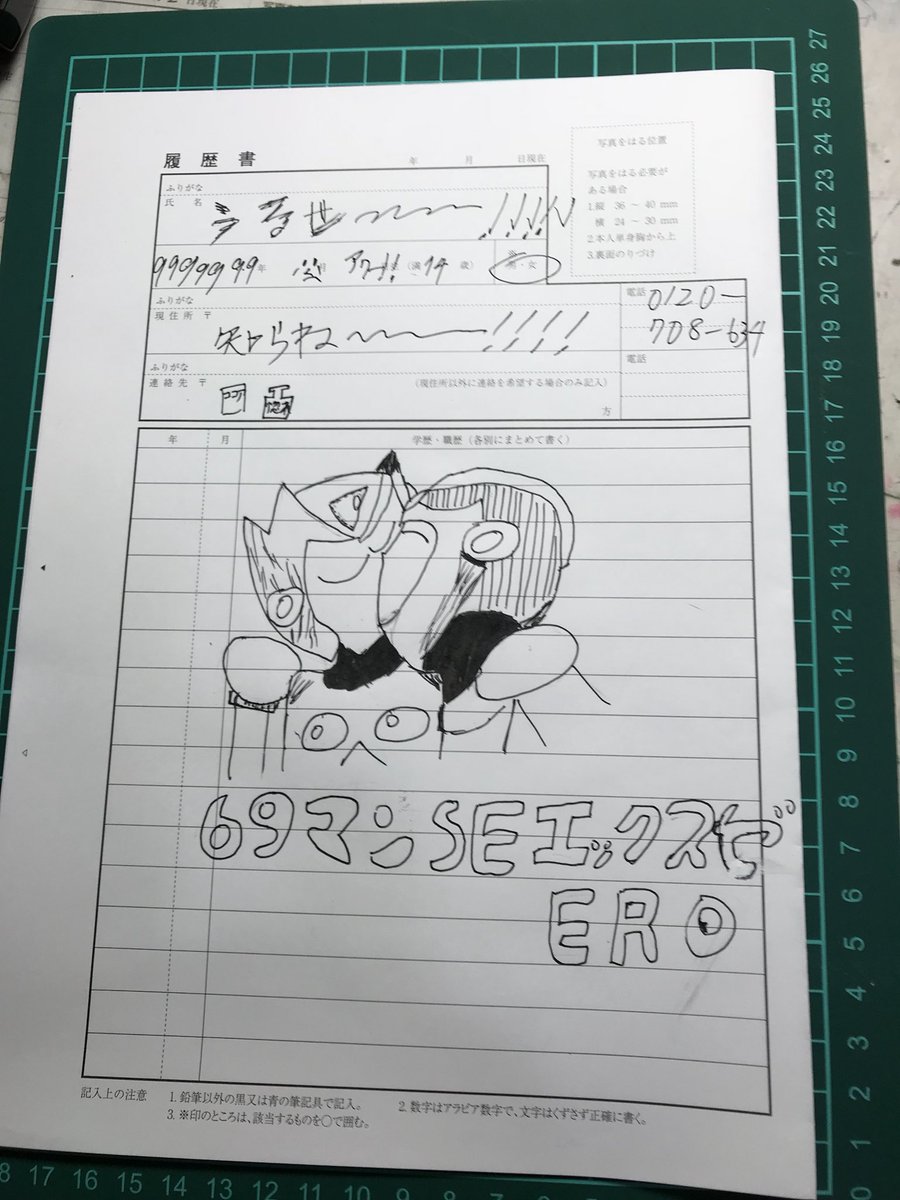 履 歴 書
年 月 日現在
写真をはる位置
写真をはる必要が
ある場合
1.縦 36 ~ 40 mm
横 24 ~ 30 mm
2.本人単身胸から上
3.裏面のりづけ
ふりがな
氏 名
世
9999999年 アワー!! (満 14 歳) 男・女
ふりがな
電話 0120-
708-634
現住所 〒
知らね〜〜!!!!
ふりがな
電話
連絡先 〒 (現住所以外に連絡を希望する場合のみ記入)
方
年 月 学歴・職歴 (各別にまとめて書く)
69マンSEエックスだ
ERO
記入上の注意 1.鉛筆以外の黒又は青の筆記具で記入。 2.数字はアラビア数字で、文字はくずさず正確に書く。
3.※印のところは、該当するものを○で囲む。
27
26
25
24
23
22
21
20
19
18
17
16
15
14
13
12
11
10
9
8
7
6
5
4
3
2
1
0
18 17 16 15 14 13 12 11 10 9 8 7 6 5 4 3 2